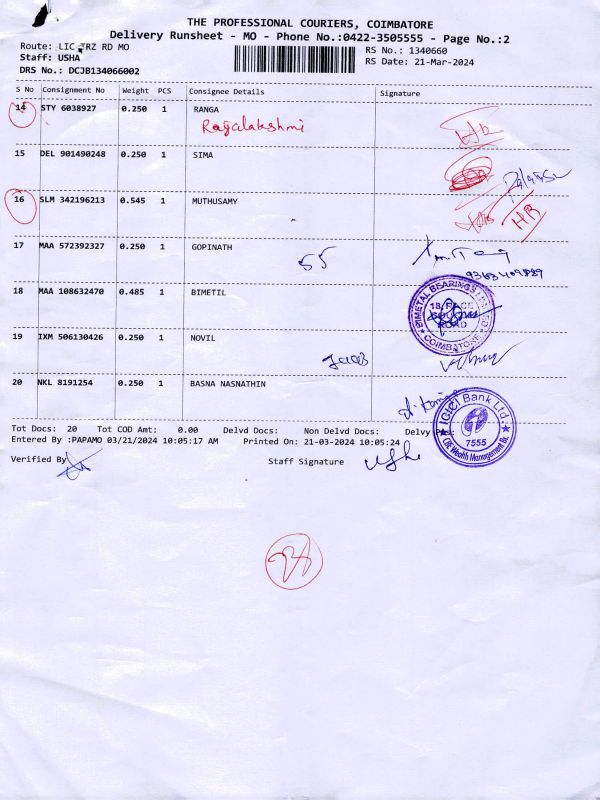 THE PROFESSIONAL COURIERS, COIMBATORE
Delivery Runsheet - MO - Phone No.:0422-3505555 - Page No.:2
Route: LIC TRZ RD MO
RS No.: 1340660
Staff: USHA
RS Date: 21-Mar-2024
DRS No.: DCJB134066002
S No Consignment No Weight PCS Consignee Details Signature
14 STY 6038927 0.250 1 RANGA
Rajalakshmi
15 DEL 901490248 0.250 1 SIMA
16 SLM 342196213 0.545 1 MUTHUSAMY
HR
17 MAA 572392327 0.250 1 GOPINATH
55
18 MAA 108632470 0.485 1 BIMETIL
BIMETAL BEARINGS LIMITED
COIMBATORE
19 IXM 506130426 0.250 1 NOVIL
20 NKL 8191254 0.250 1 BASNA NASNATHIN
ICICI Bank Ltd.
7555
CBE Wealth Management Br.
Tot Docs: 20 Tot COD Amt: 0.00 Delvd Docs: Non Delvd Docs: Delvy
Entered By :PAPAMO 03/21/2024 10:05:17 AM Printed On: 21-03-2024 10:05:24
Verified By
Staff Signature Usha